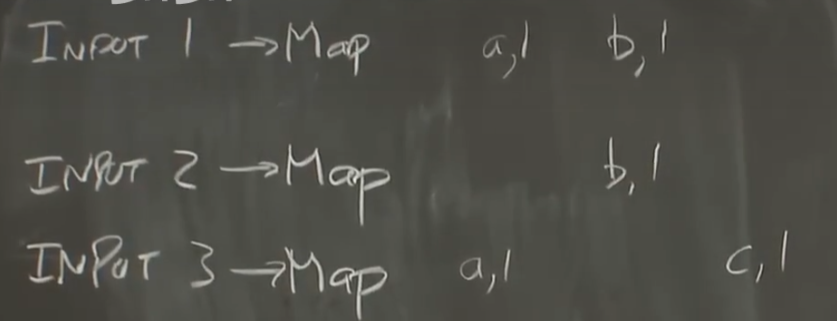 INPUT 1 → Map a,1 b,1
INPUT 2 → Map b,1
INPUT 3 → Map a,1 c,1